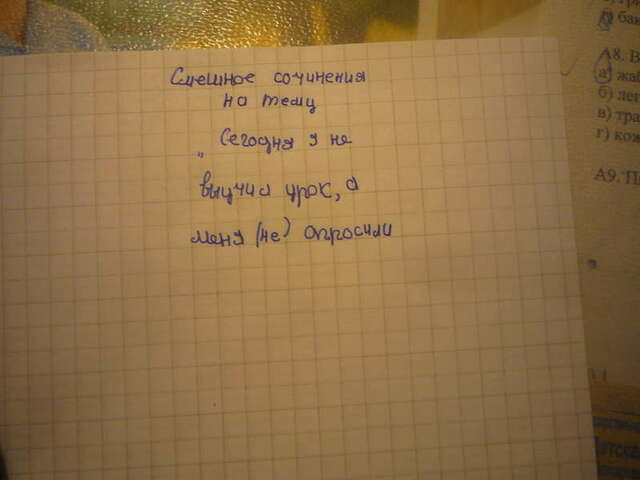 Смешное сочинения
на тему
„ Сегодня я не
выучил урок, а
меня (не) опросили
А8. В
а) жаб
б) лег
в) тра
г) кож
А9. П